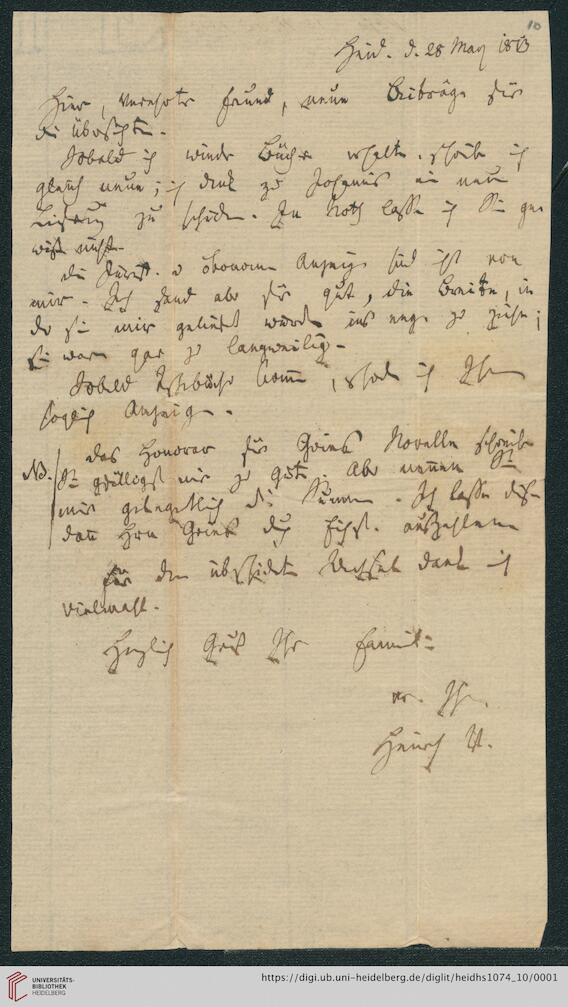 10
Heid. d. 28 May 1813
Hier, verehrter Freund, neue Beiträge für
die Übersichten.
Sobald ich wieder Bücher erhalte, schreibe ich
gleich neue; ich denke zu Johannis eine neue
Lieferung zu schicken. In Noth lasse ich Sie ge-
wiß nicht.
Die u ökonom Anzeige sind ist von
mir. Ich fand aber für gut, die Breite, in
der sie mir geliefert wurde ins enge zu ziehn;
sie war gar zu langweilig.
Sobald kommen, schicke ich Ihnen
sogleich Anzeige.
NB. Das Honorar für Novelle schreiben
Sie gefälligst mir zu gute. Aber nennen Sie
mir gelegentlich die Summe. Ich lasse dies
dann Hrn durch auszahlen.
Für den übschickten Wechsel danke ich
vielmahl.
Herzlich Gruß Ihr Famil:
von Ihrem
Heinrich V.
UNIVERSITÄTS-
BIBLIOTHEK
HEIDELBERG
https://digi.ub.uni-heidelberg.de/diglit/heidhs1074_10/0001